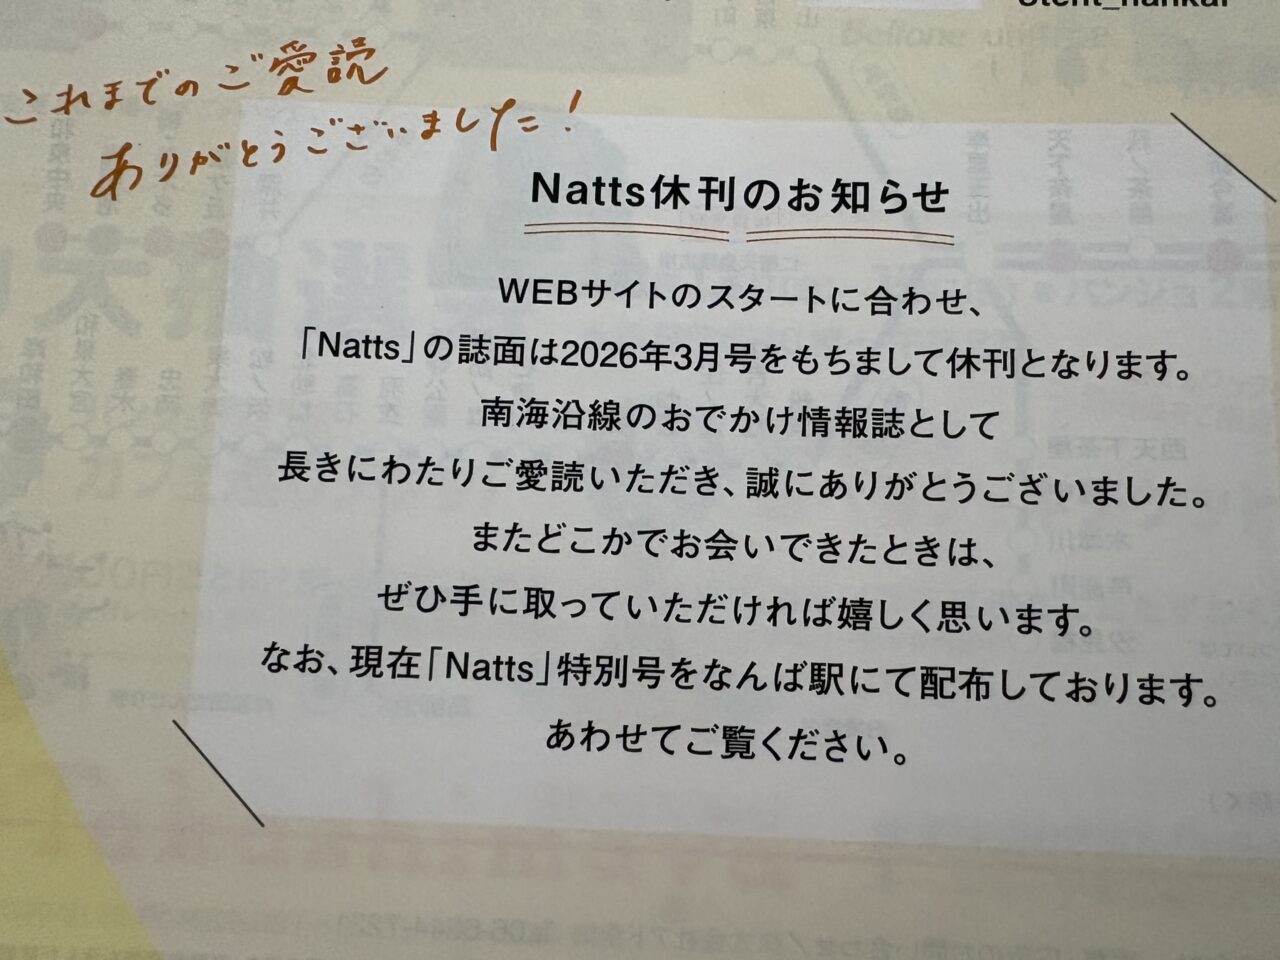 これまでのご愛読
ありがとうございました!
Natts休刊のお知らせ
WEBサイトのスタートに合わせ、
「Natts」の誌面は2026年3月号をもちまして休刊となります。
南海沿線のおでかけ情報誌として
長きにわたりご愛読いただき、誠にありがとうございました。
またどこかでお会いできたときは、
ぜひ手に取っていただければ嬉しく思います。
なお、現在「Natts」特別号をなんば駅にて配布しております。
あわせてご覧ください。